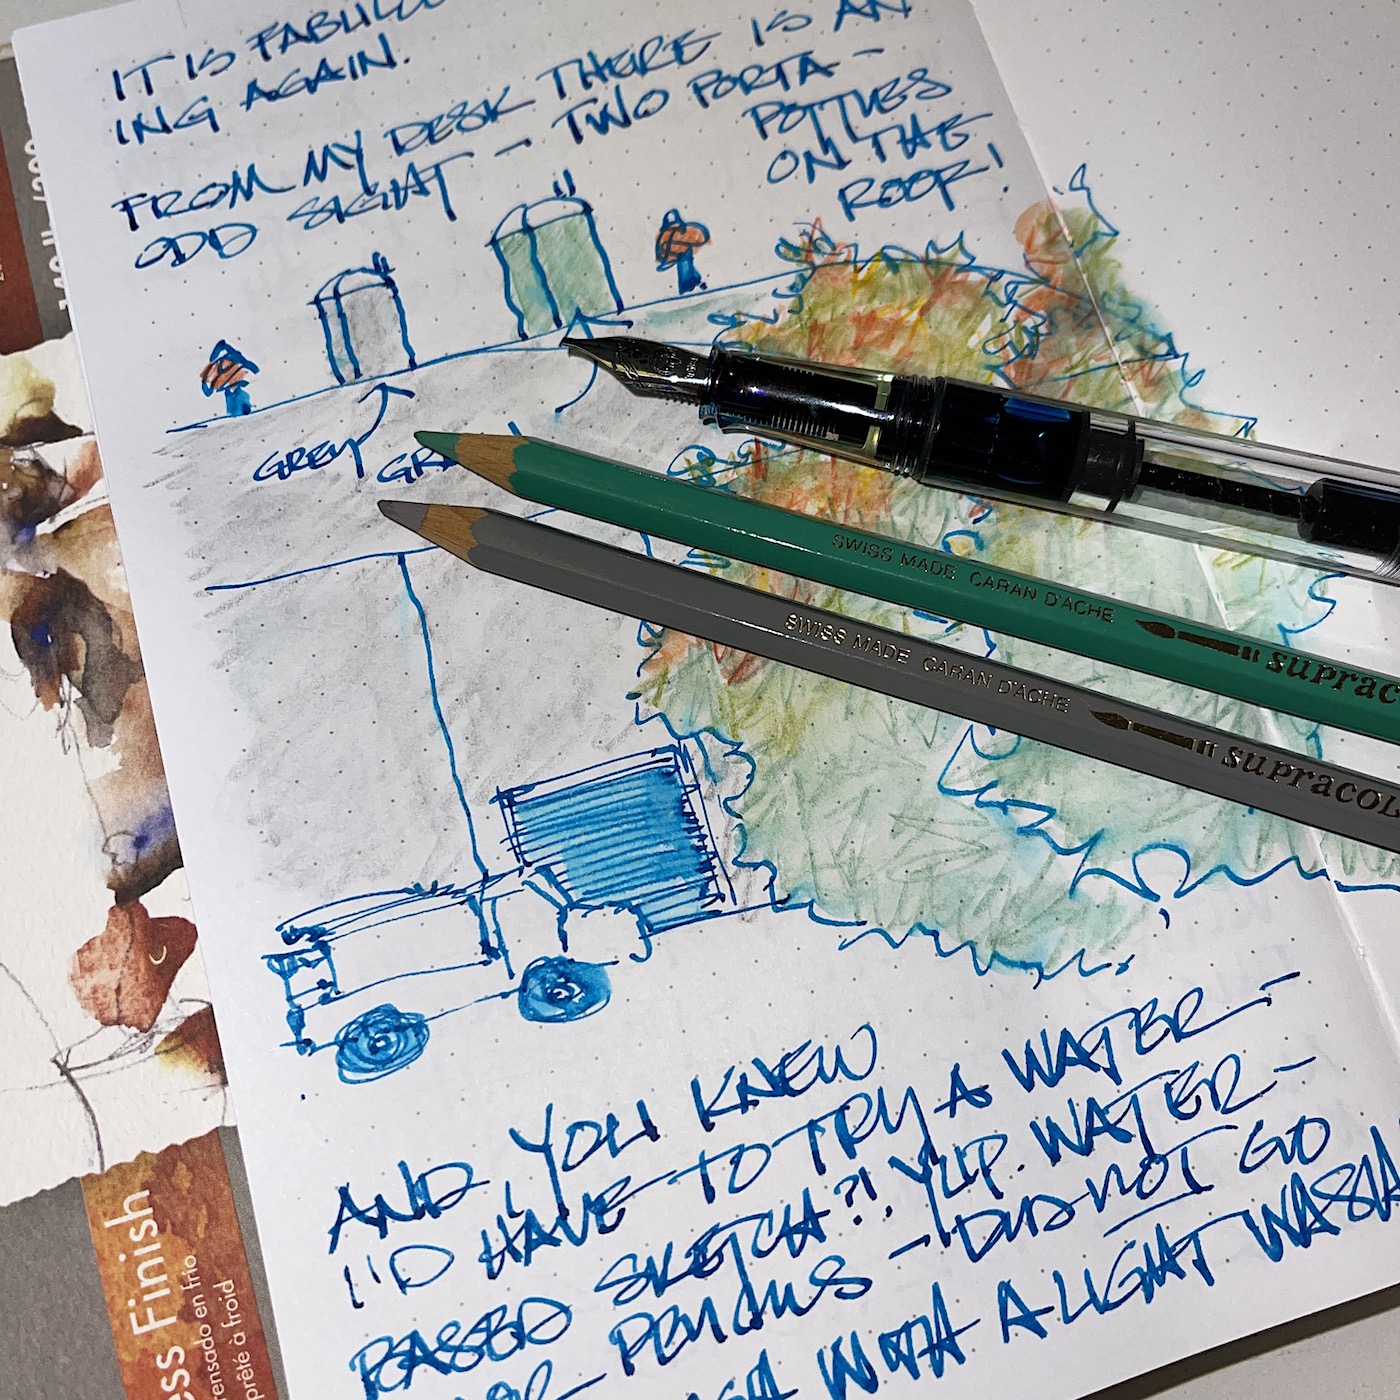 IT IS FABULO
ING AGAIN.
FROM MY DESK THERE IS AN
ODD SIGHT - TWO PORTA-
POTTIES
ON THE
ROOF!
GREY GR
SWISS MADE CARAN D'ACHE supraco
SWISS MADE CARAN D'ACHE supracol
AND, YOU KNEW
I'D HAVE TO TRY A WATER-
BASED SKETCH?! YUP. WATER-
PENCILS - DID NOT GO
WITH A LIGHT WASH
ess Finish
rensado en frío
prêté à froid